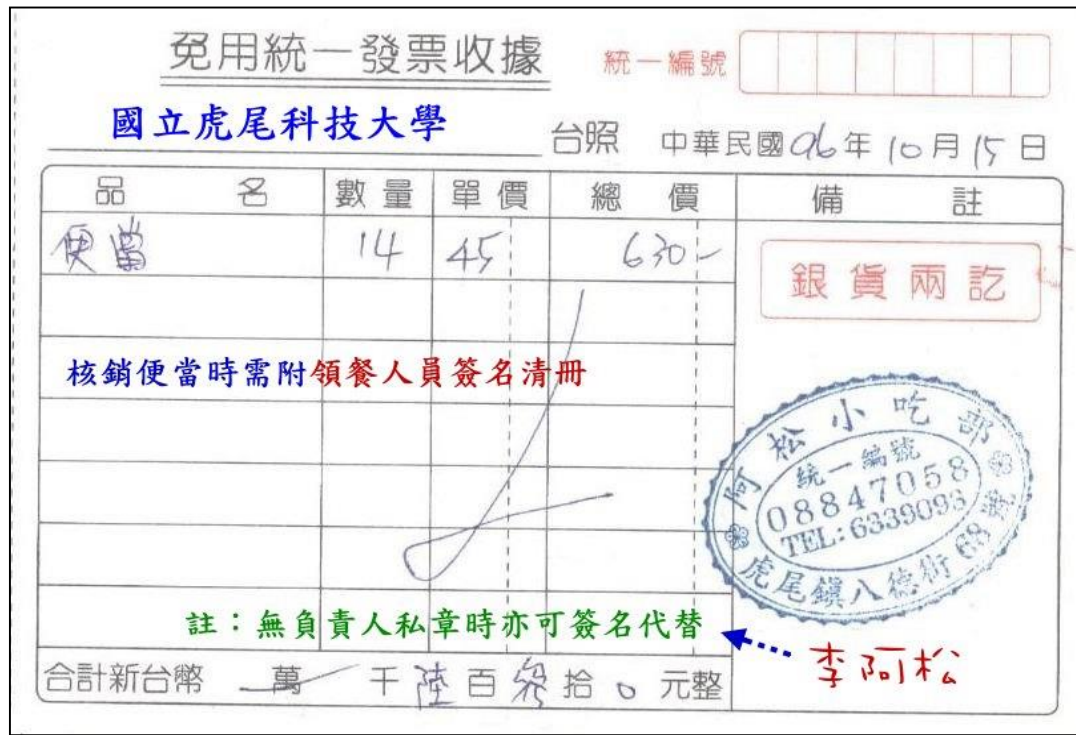 免用統一發票收據 統一編號
國立虎尾科技大學 台照 中華民國96年10月15日
品名 數量 單價 總價 備註
便當 14 45 630-
銀貨兩訖
核銷便當時需附領餐人員簽名清冊
阿松小吃部
統一編號
08847058
TEL:6339093
虎尾鎮八德街68號
註：無負責人私章時亦可簽名代替
李阿松
合計新台幣 萬 千 陸 百 參 拾 0 元整